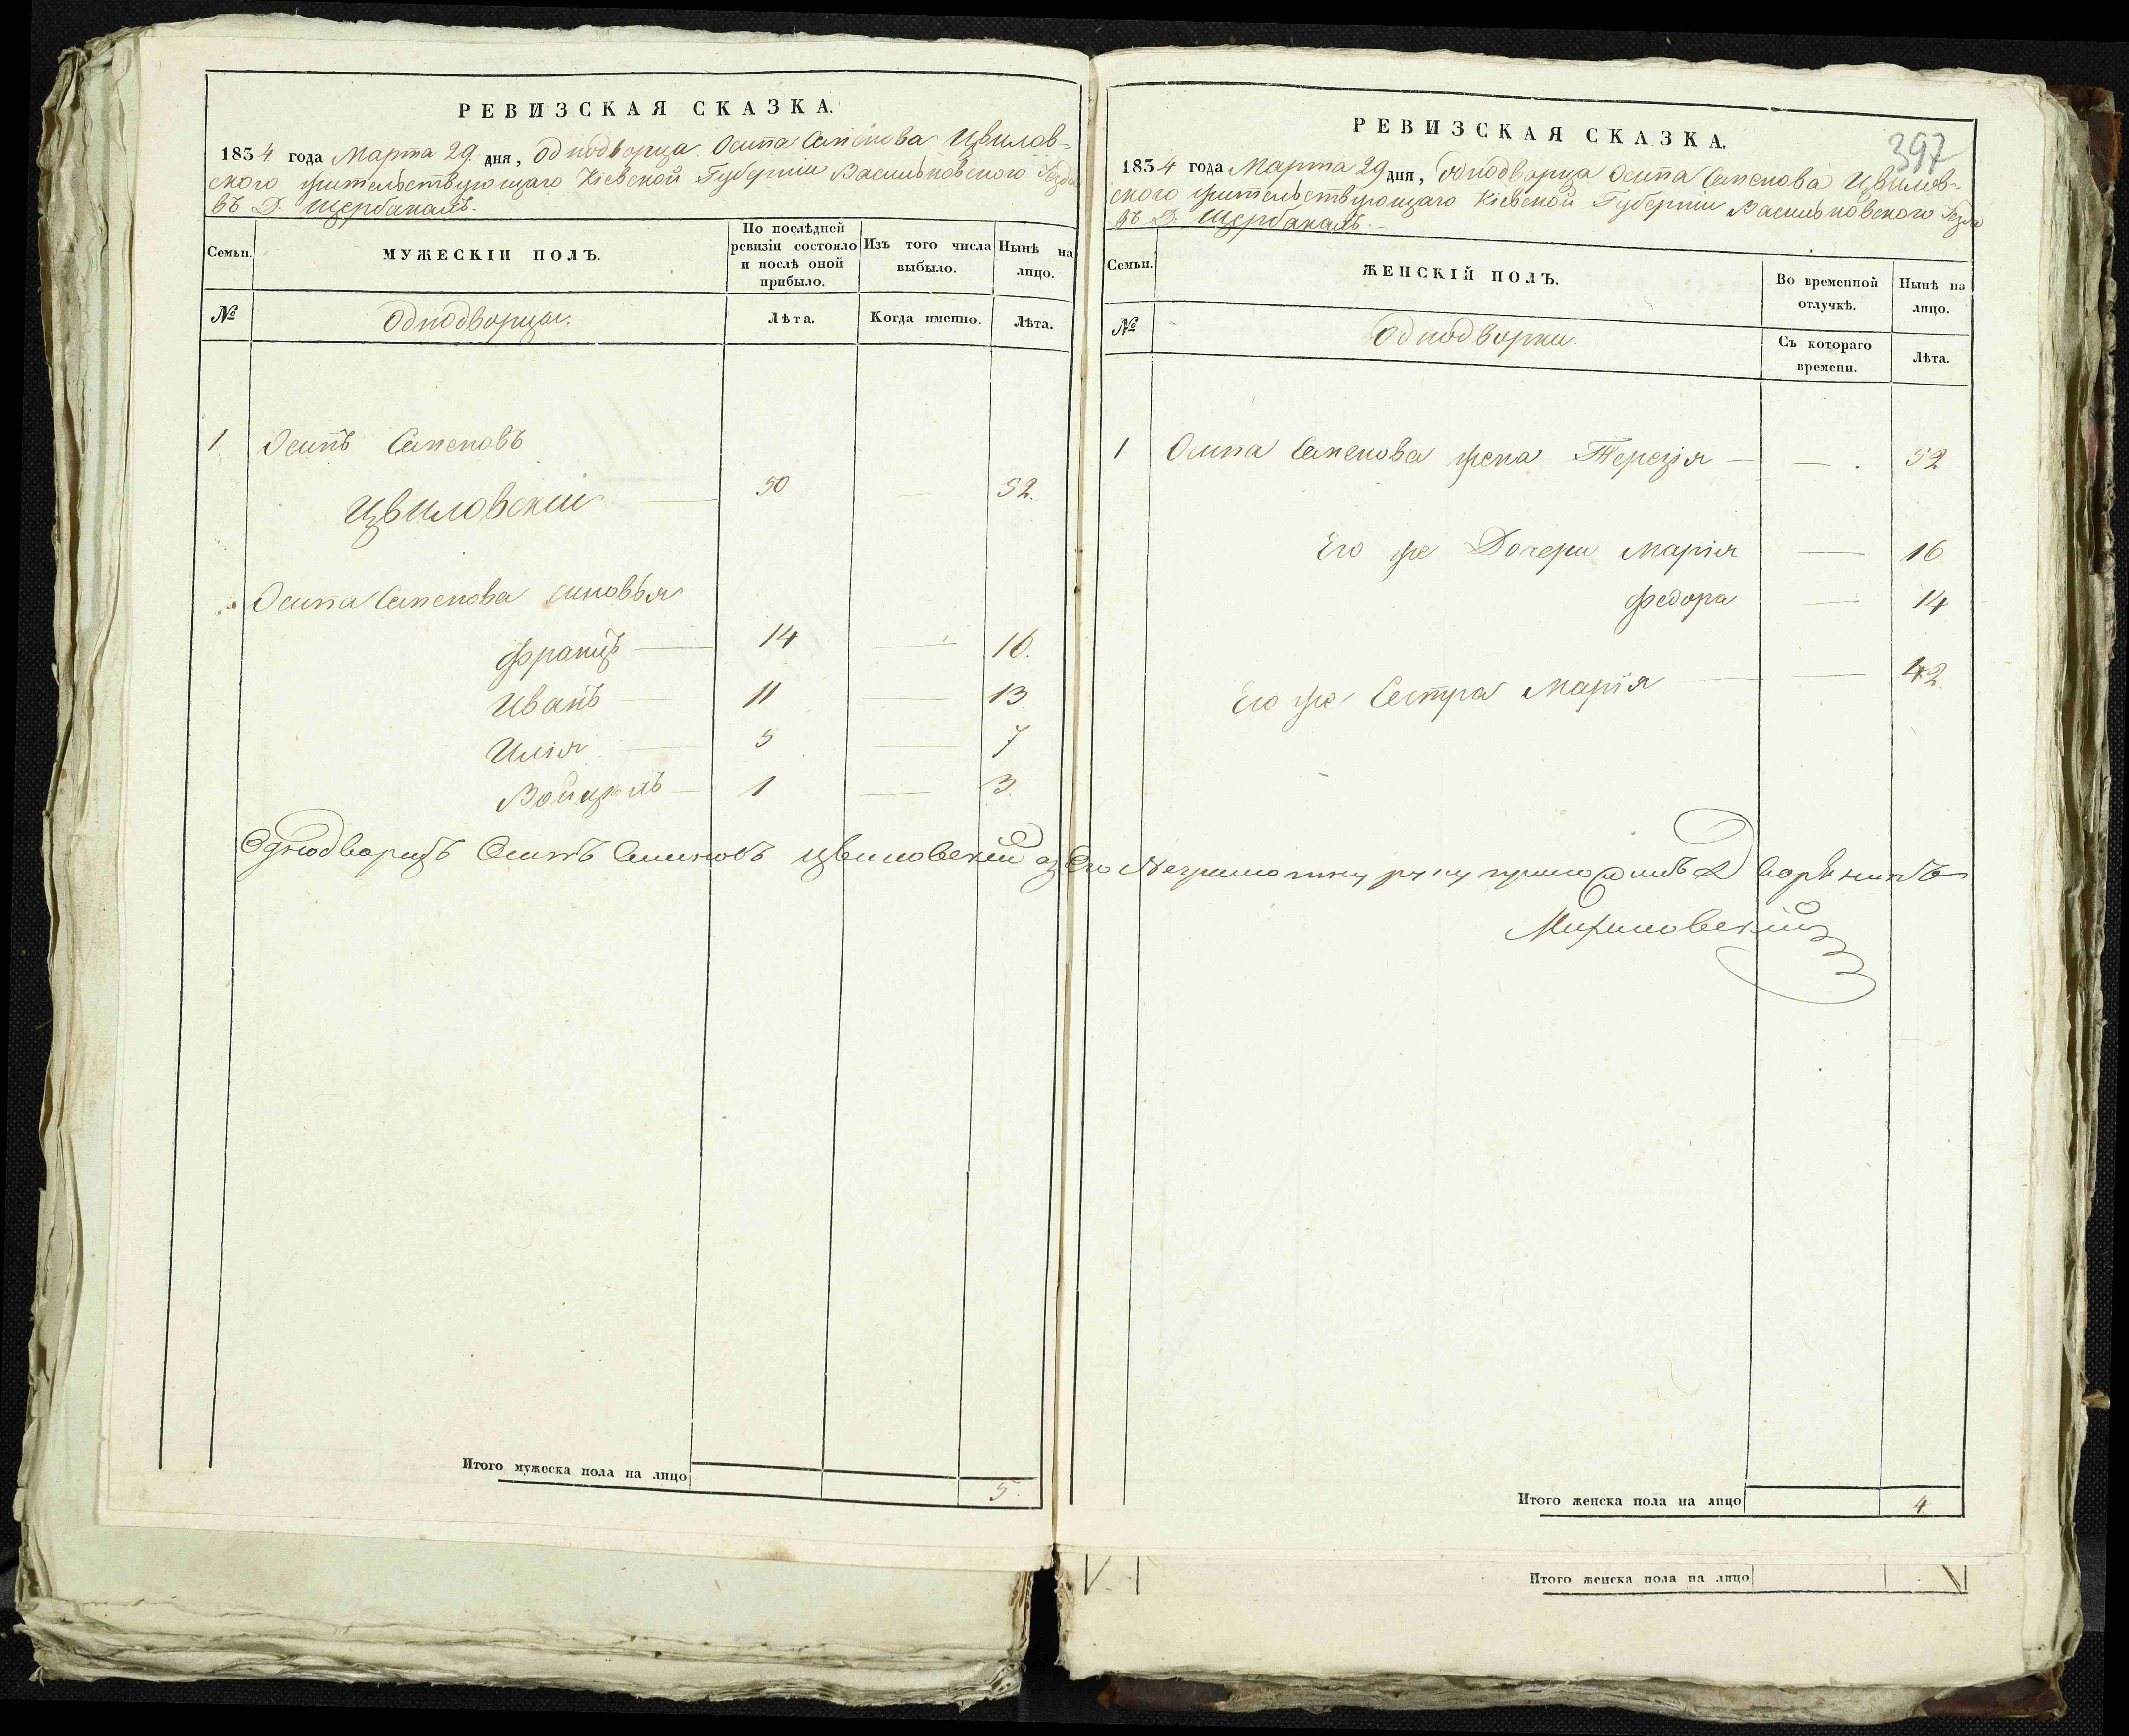 РЕВИЗСКАЯ СКАЗКА.
1834 года Марта 29 дня, Однодворца Осипа Семенова Цвилов-
ского жительствующаго Кіевской Губерніи Васильковского Уезда
въ Д. Щербакахъ.
Семьи.
МУЖЕСКІЙ ПОЛЪ.
По послѣдней ревизіи состояло и послѣ оной прибыло.
Изъ того числа выбыло.
Нынѣ на лицо.
№
Однодворцы.
Лѣта.
Когда именно.
Лѣта.
1 Осипъ Семеновъ
Цвиловскій — 50 — 52.
Осипа Семенова сыновья
Францъ — 14 — 16.
Иванъ — 11 — 13
Илія — 5 — 7
Войцехъ — 1 — 3.
Итого мужеска пола на лицо 5.
397
РЕВИЗСКАЯ СКАЗКА.
1834 года Марта 29 дня, Однодворца Осипа Семенова Цвилов-
ского жительствующаго Кіевской Губерніи Васильковского Уезда
въ Д. Щербакахъ.
Семьи.
ЖЕНСКІЙ ПОЛЪ.
Во временной отлучкѣ.
Нынѣ на лицо.
№
Однодворки.
Съ котораго времени.
Лѣта.
1 Осипа Семенова жена Терезія — — . 52
Его же Дочери Марія — 16
Федора — 14
Его же Сестра Марія — — 42.
Однодворецъ Осипъ Семиновъ Цвиловский а за Его Неграмотну руку приложилъ Дварянинъ
Итого женска пола на лицо 4.
Итого женска пола на лицо